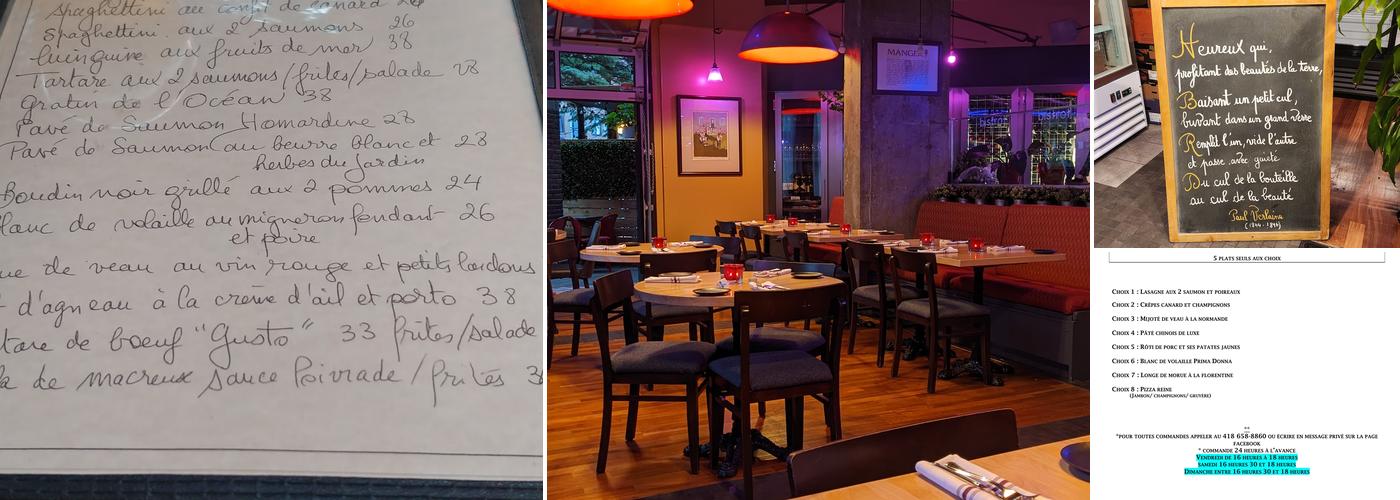 Spaghettini au confit de canard
Spaghettini aux 2 saumons 26
Linguine aux fruits de mer 38
Tartare aux 2 saumons/frites/salade 28
Gratin de l'Océan 38
Pavé de Saumon Homardine 28
Pavé de Saumon au beurre blanc et 28
herbes du Jardin
Boudin noir grillé aux 2 pommes 24
blanc de volaille au migneron fondant 26
et poire
de veau au vin rouge et petits lardons
d'agneau à la crème d'ail et porto 38
de boeuf "Gusto" 33 frites/salade
de macreuse sauce Poivrade/frites
MANGE
bistrot
Heureux qui,
profitant des beautés de la terre,
Baisant un petit cul,
buvant dans un grand verre
Remplit l'un, vide l'autre
et passe avec gaieté
Du cul de la bouteille
au cul de la beauté
Paul Verlaine
(1844-1896)
5 PLATS SEULS AUX CHOIX
CHOIX 1 : LASAGNE AUX 2 SAUMON ET POIREAUX
CHOIX 2 : CRÊPES CANARD ET CHAMPIGNONS
CHOIX 3 : MIJOTÉ DE VEAU À LA NORMANDE
CHOIX 4 : PÂTÉ CHINOIS DE LUXE
CHOIX 5 : RÔTI DE PORC ET SES PATATES JAUNES
CHOIX 6 : BLANC DE VOLAILLE PRIMA DONNA
CHOIX 7 : LONGE DE MORUE À LA FLORENTINE
CHOIX 8 : PIZZA REINE
(JAMBON/ CHAMPIGNONS/ GRUYÈRE)
*POUR TOUTES COMMANDES APPELER AU 418 658-8860 OU ÉCRIRE EN MESSAGE PRIVÉ SUR LA PAGE
FACEBOOK
* COMMANDE 24 HEURES À L'AVANCE
VENDREDI DE 16 HEURES À 18 HEURES
SAMEDI 16 HEURES 30 ET 18 HEURES
DIMANCHE ENTRE 16 HEURES 30 ET 18 HEURES